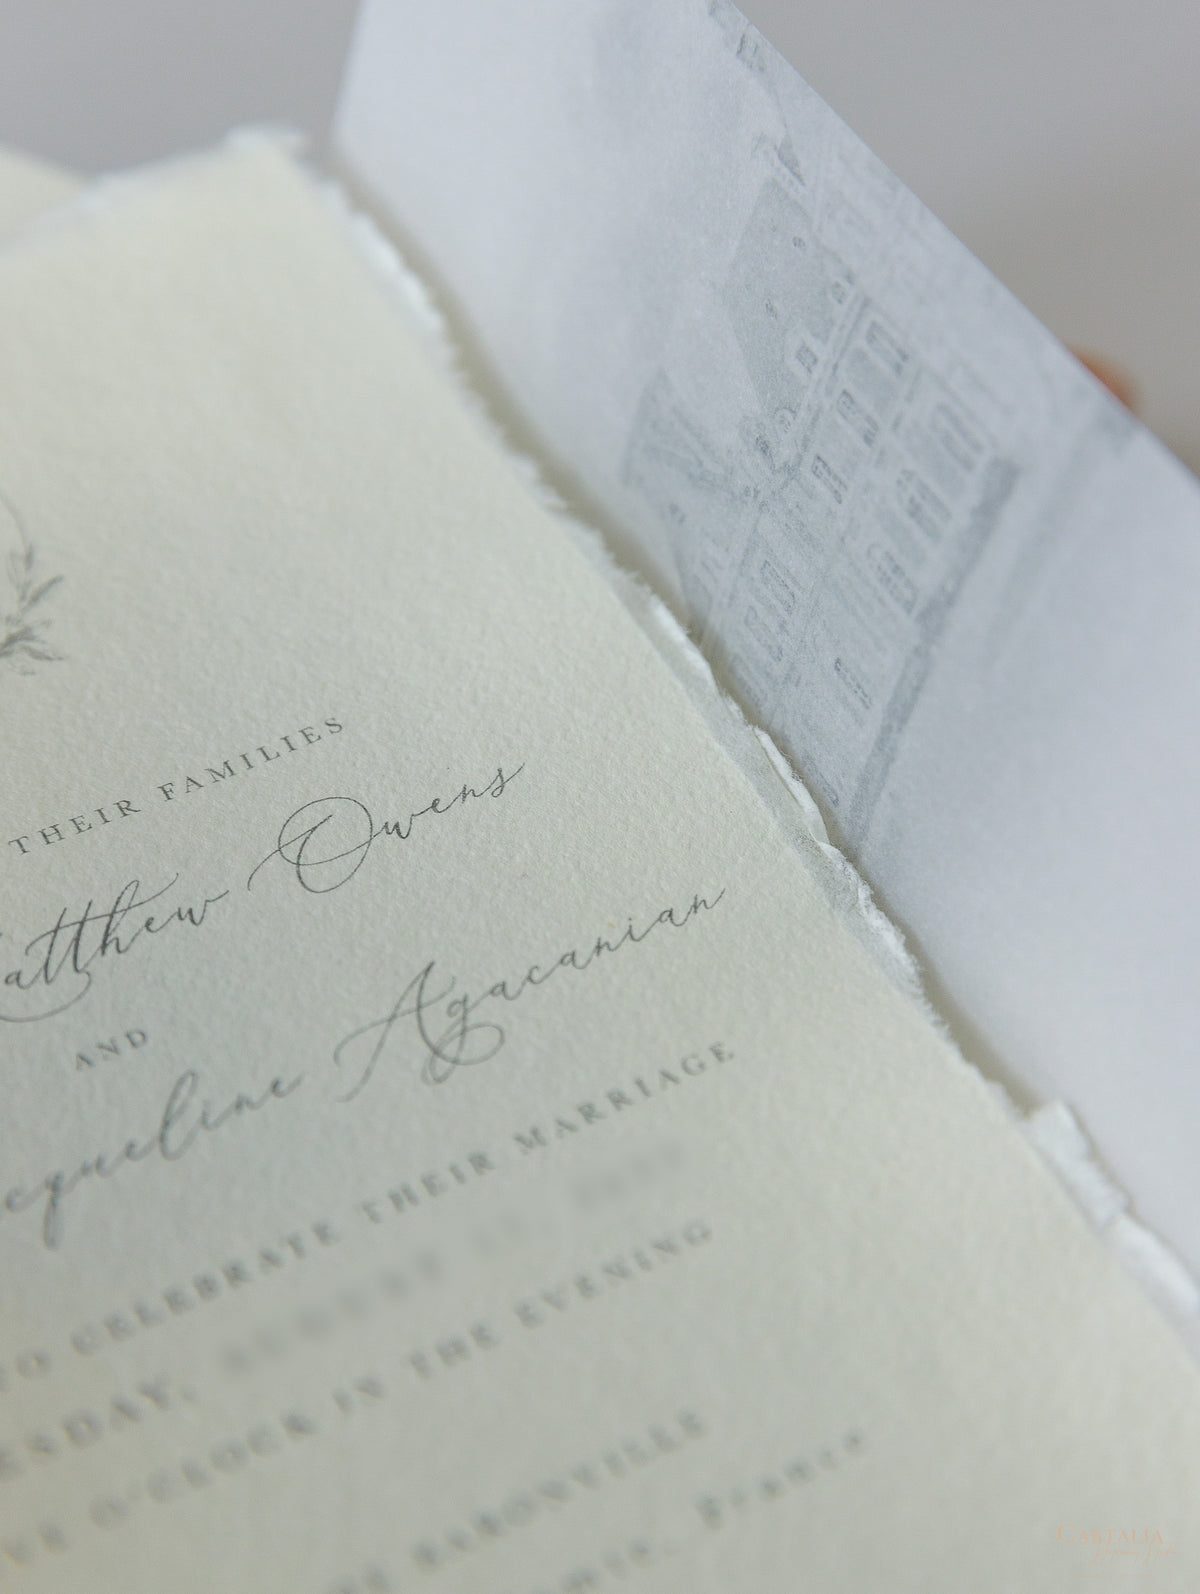 THEIR FAMILIES
atthew Owens
AND
cqueline Agacanian
TO CELEBRATE THEIR MARRIAGE
ESDAY,
O'CLOCK IN THE EVENING
BARONVILLE
France
CARTALIA